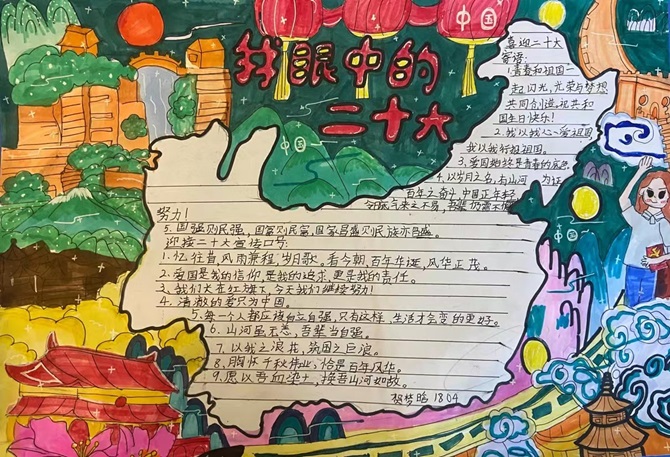 我眼中的
二十大
中国
中国
喜迎二十大
寄语:
1.青春和祖国一
起闪光,光荣与梦想
共同创造,祖共和
国生日快乐!
2.我以我心爱祖国
我以我行报祖国。
3.爱国始终是青春的底色。
4.以岁月之名,与山河为证
百年之奋斗 中国正年轻
今成气来之不易,吾辈仍需不懈
努力!
5.国强则民强,国富则民富,国家昌盛则民族亦昌盛。
迎接二十大宣传口号:
1.忆往昔,风雨兼程,岁月歌,看今朝,百年华诞,风华正茂。
2.爱国是我的信仰,是我的追求,更是我的责任。
3.我们大在红旗下,今天我们继续努力!
4.清澈的爱只为中国。
5.每一个人都应该自立自强,只有这样,生活才会变的更好。
6.山河虽无恙,吾辈当自强。
7.以我之浪花,筑国之巨浪。
8.胸怀千秋伟业,恰是百年风华。
9.愿以吾血染土,换吾山河如故。
梦晗 1804